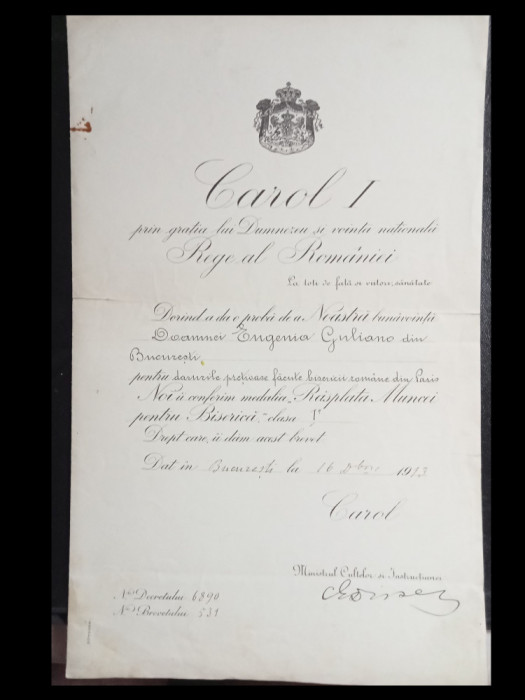 Carol I
prin grația lui Dumnezeu și voința națională
Rege al României
La toți de față și viitori, sănătate
Dorind a da o probă de a Noastră bunăvoință
Doamnei Eugenia Guliano din
București
pentru darurile prețioase făcute bisericii române din Paris
Noi îi conferim medalia „Răsplata Muncei
pentru Biserică," clasa I
Drept care, îi dăm acest brevet
Dat în București la 16 1913
Carol
Ministrul Cultelor și Instrucțiunei
No. Decretului 6890
No. Brevetului 531